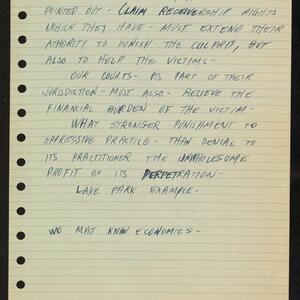 POINTED OUT - CLAIM RECEIVERSHIP RIGHTS
WHICH THEY HAVE - MUST EXTEND THEIR
ATHORITY TO PUNISH THE CULPRIT, BUT
ALSO TO HELP THE VICTIMS -
OUR COURTS - AS PART OF THEIR
JURISDICTION - MUST ALSO - RELIEVE THE
FINANCIAL BURDEN OF THE VICTIM -
WHAT STRONGER PUNISHMENT TO
OPPRESSIVE PRACTICE - THAN DENIAL TO
ITS PRACTITIONER THE UNWHOLESOME
PROFIT OF ITS PERPETRATION -
LAKE PARK EXAMPLE -
WE MUST KNOW ECONOMICS -